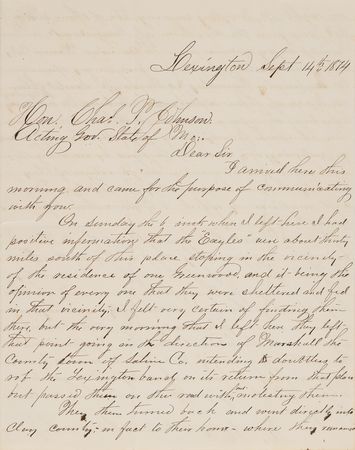 Lexington Sept 14th 1874
Hon. Chas. P. Johnson.
Acting Gov. State of Mo.
Dear Sir
I arrived here this
morning and came for the purpose of communicating
with you.
On Sunday the 6 inst. when I left here I had
positive information that the "Eagles" were about thirty
miles south of this place stoping in the vicinity
of the residence of one Greenwood, and it being the
opinion of every one that they were sheltered and fed
in that vicinity. I felt very certain of finding them
there, but the very morning that I left here they left
that point going in the direction of Marshall the
County town of Saline Co. intending doubtless to
rob the Lexington band on its return from that place
but passed them on the road without molesting them.
They then turned back and went directly into
Clay County in fact to their home where they